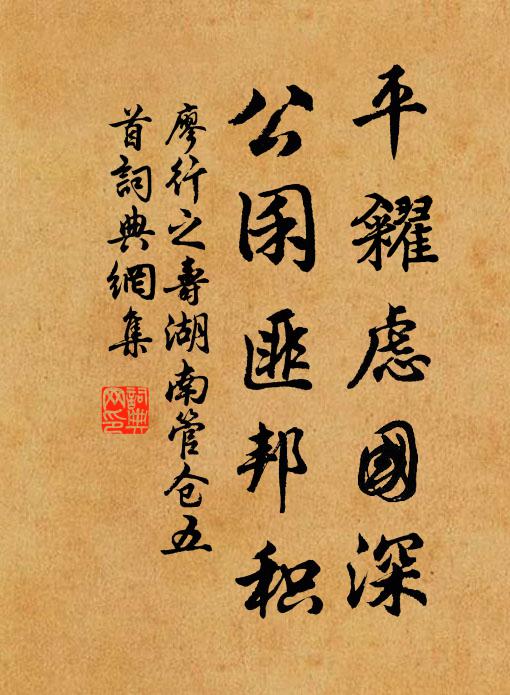 平糴虑國深
公囷匪邦积
廖行之壽湖南管仓五
首詞典網集
詞典网印